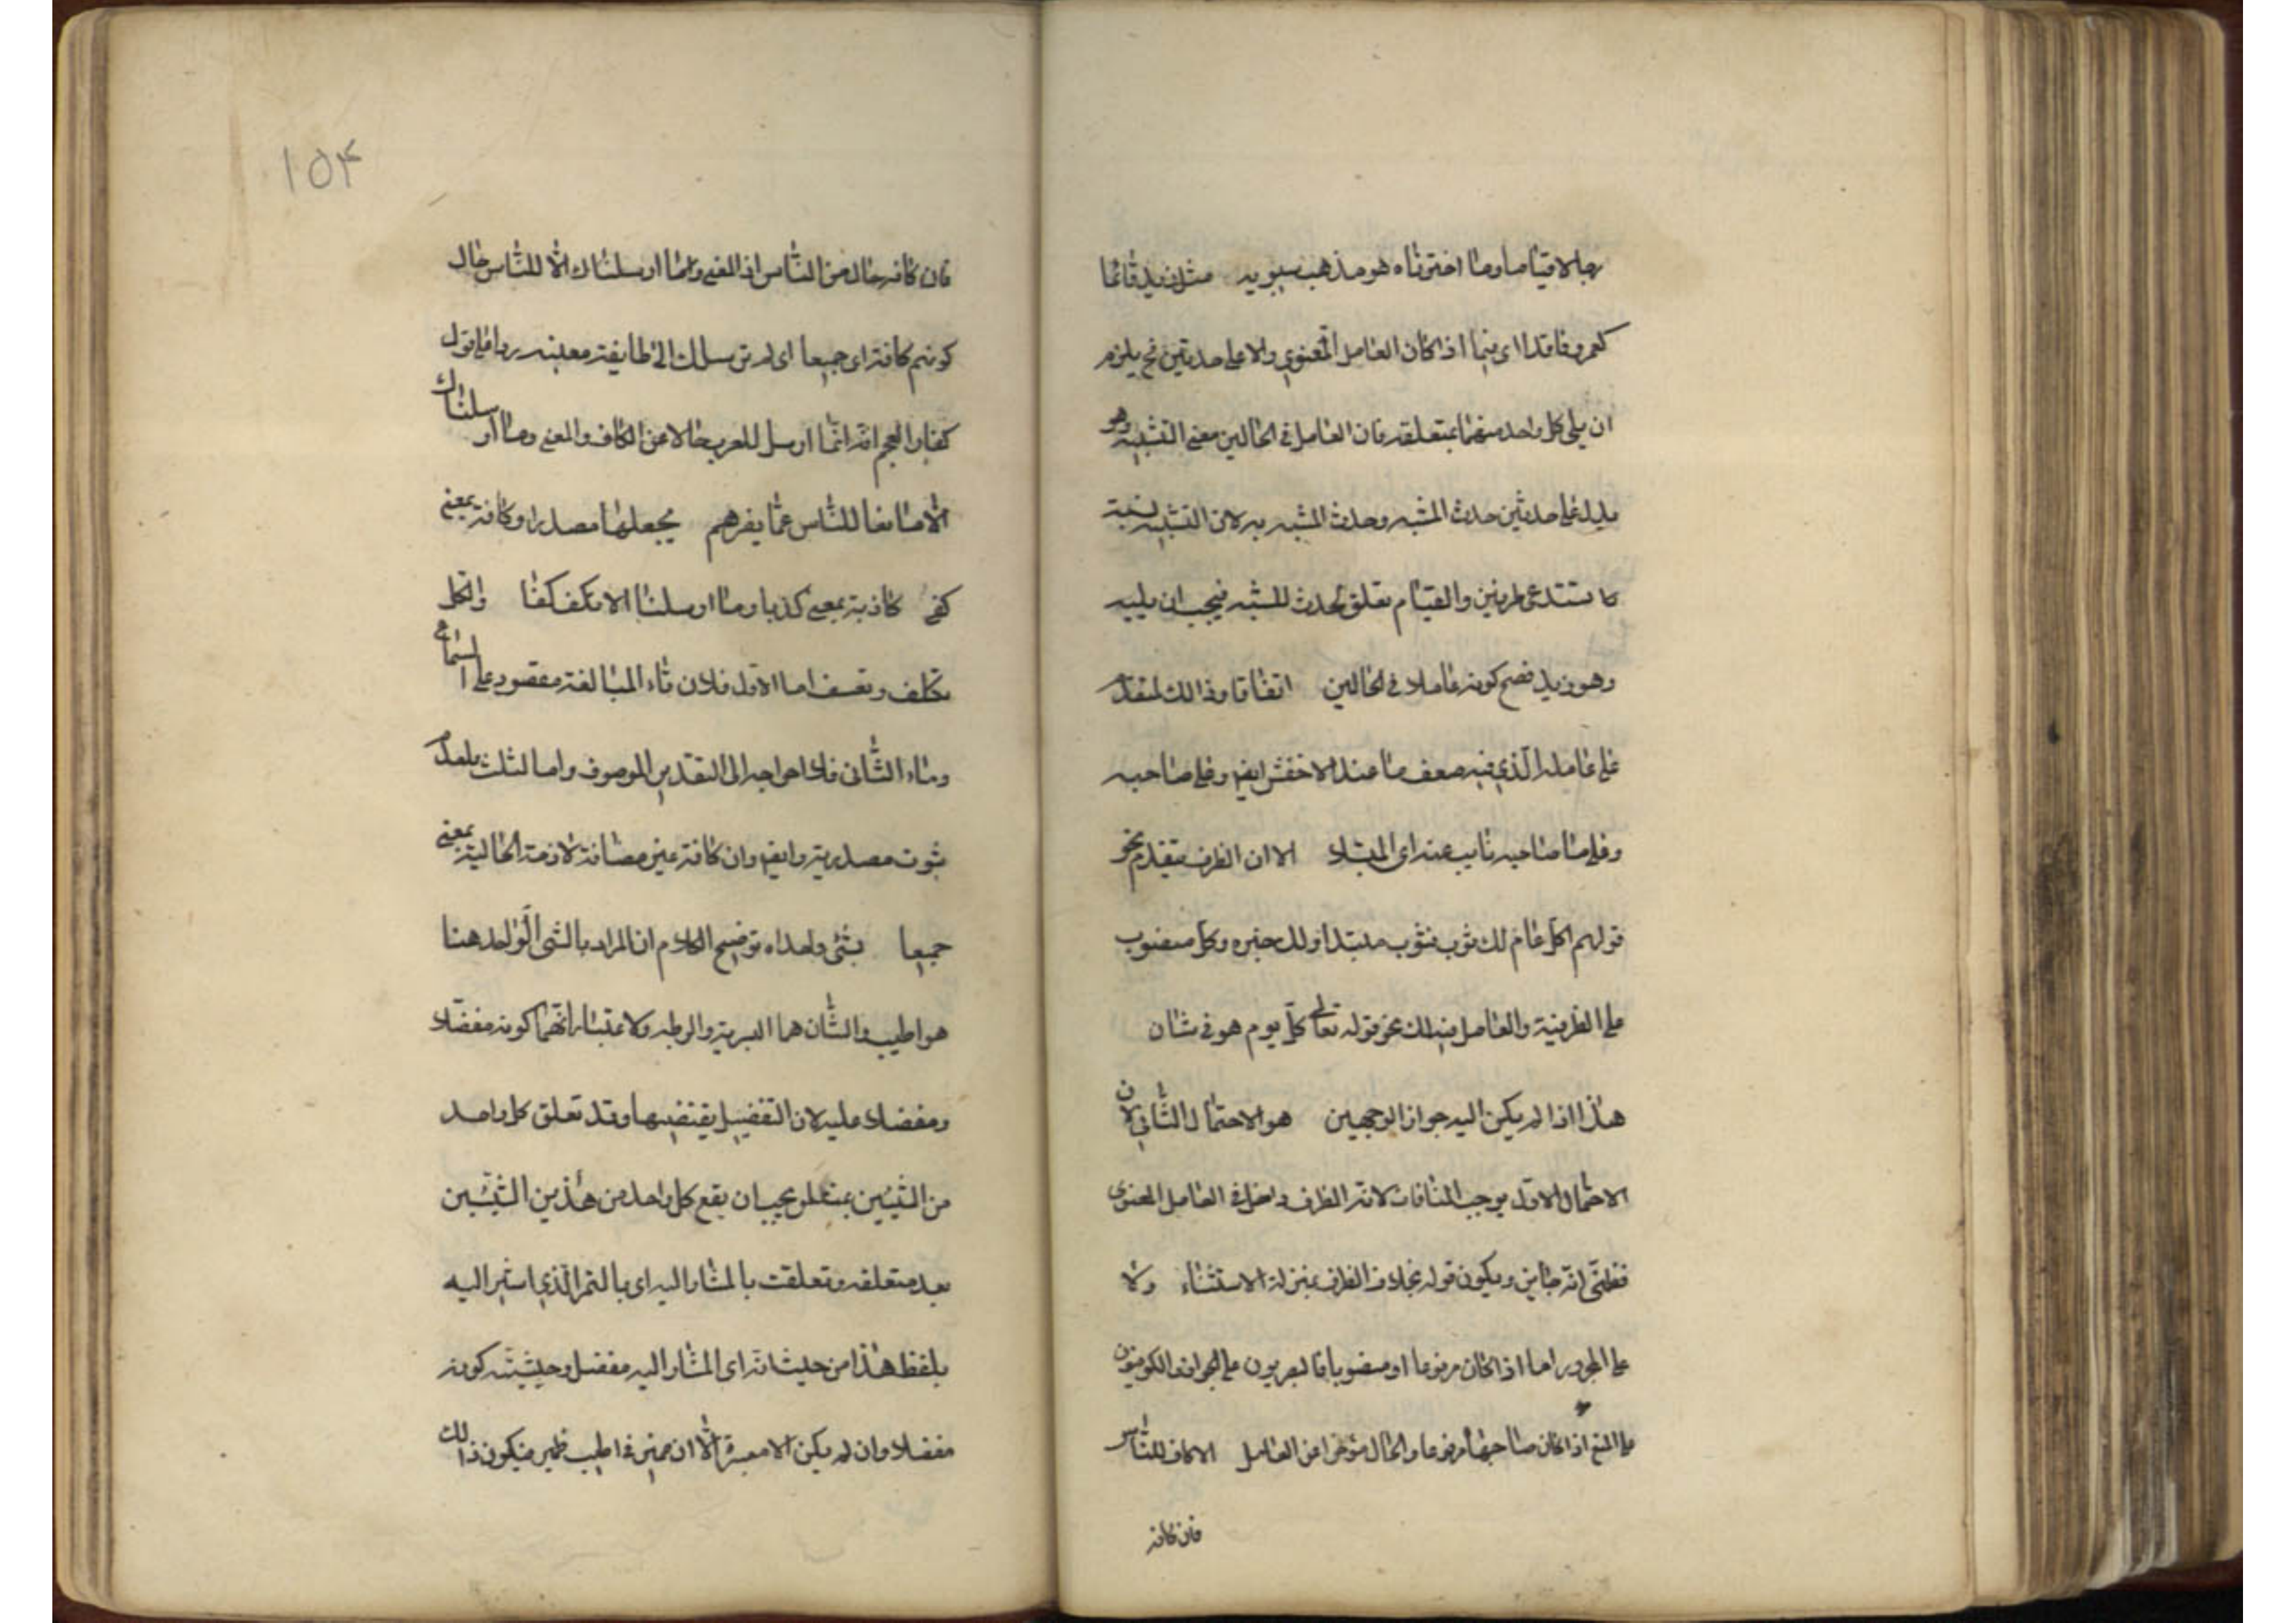 رجلا لاقياما وما اخترناه هو مذهب سيبويه مثل زيد قائما
كعمرو قاعدا اى فيما اذا كان العامل المعنوي دالا على حدثين فح يلزم
ان يلى كل واحد منهما بمتعلقه فان العامل فى الحالين معنى التشبيه وهو
يدل على حدثين حدث المشبه وحدث المشبه به لان التشبيه نسبة
تستدعى طرفين والقيام تعلق بحدث المشبه فيجب ان يليه
وهو زيد فصح كونه عاملا فى الحالين اتفاقا وذالك لتقدم
على عامله الذي فيه ضعف ما عند الاخفش ايضا وعلى صاحبه
وعلى ما صاحبه نايب عنه اى المبتدا الا ان الظرف يتقدم نحو
قولهم اكل عام لك ثوب فثوب مبتدا ولك خبره وكل منصوب
على الظرفية والعامل فيه لك نحو قوله تعالى كل يوم هو فى شان
هذا اذا لم يكن اليه جواز الوجهين هو الاحتمال الثاني لان
الاحتمال الاول يوجب المنافات لانه الظرف داخل فى العامل المعنوى
فظنى انه جاين ويكون قوله بخلاف الظرف بمنزلة الاستثناء ولا
على المجرور اما اذا كان مرفوعا او منصوبا فالبصريون على الجواز والكوفيون
على المنع اذا كان صاحبها مرفوعا والحال مؤخرا عن العامل الا كافة للناس
فان كافة
١٥٤
فان كافة حال من الناس اذ المعنى وما ارسلناك الا للناس حال
كونهم كافة اى جميعا اى لم نرسلك الى طايفة معينه ردا على قول
كفار العجم انه انما ارسل للعرب حالا من الكاف والمعنى وما ارسلناك
الا مانعا للناس عما يضرهم يجعلها مصدرا وكافة بمعنى
كفى كاذبة بمعنى كذبا وما ارسلنا الا نكف كفا والكل
تكلف وتعسف اما الاول فلان تاء المبالغة مقصود على السماع
وماء الثانى فلاحواجه الى التقدير الموصوف واما الثلث فلعدم
ثبوت مصدرية وايضا وان كافة عين مضافة لازمة الحالية بمعنى
جميعا بشئ واحداه توضيح الكلام ان المراد بالشى الواحد هنا
هو اطيب والشان هما البسرية والرطبه ولاعتبار انهما كونه مفضلا
ومفضلا عليه لان التفضيل يقتضيها وقد تعلق كل واحد
من الشيئين بمتعلق يجب ان يقع كل واحد من هذين الشيئين
بعد متعلقه وتعلقت بالمشار اليه اى بالتمر الذي اشير اليه
بلفظ هذا من حيث انه اى المشار اليه مفضل وحيثيته كونه
مفضلا وان لم يكن الا معبرة الا ان ضمير فى اطيب ضمير فيكون ذالك